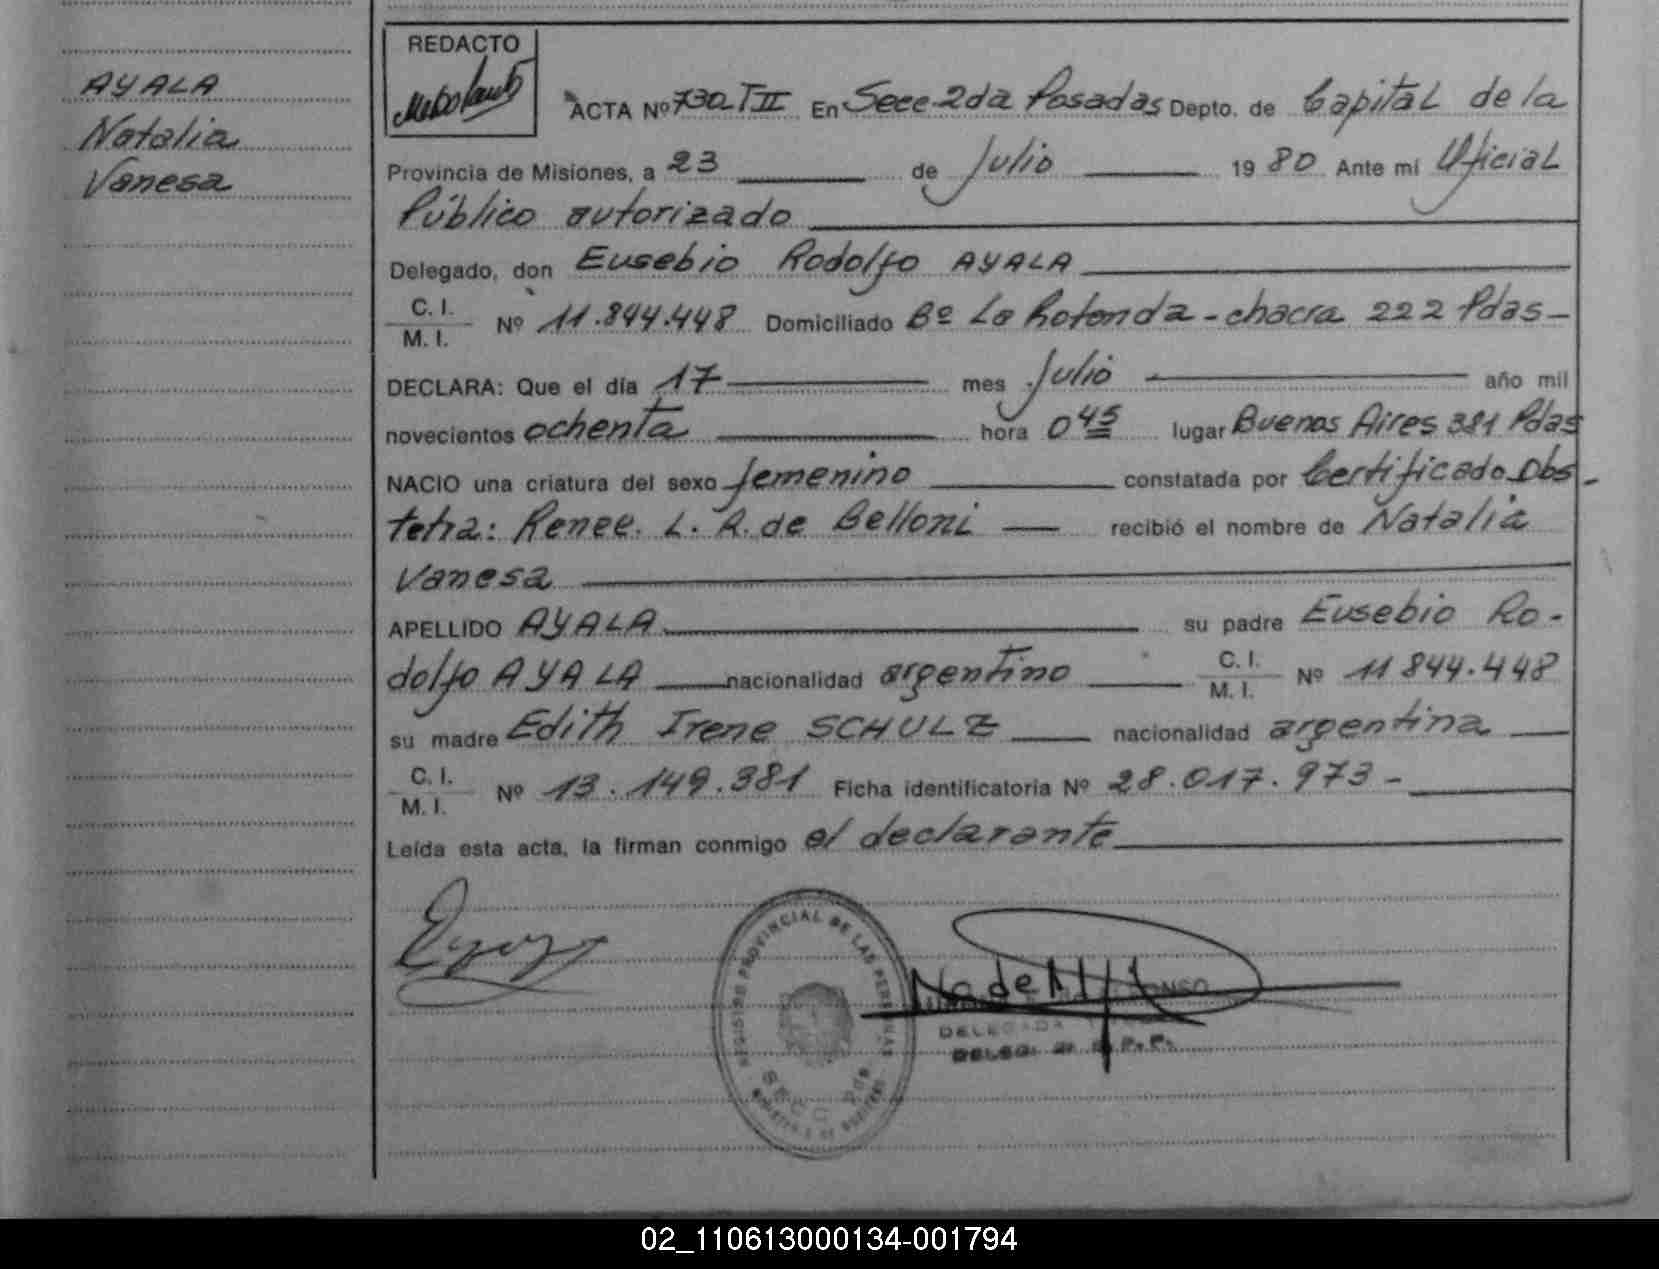 AYALA
Natalia
Vanesa
REDACTO
ACTA Nº 730 T II En Secc 2da Posadas Depto. de Capital de la
Provincia de Misiones, a 23 de Julio 19 80 Ante mi Oficial
Público autorizado
Delegado, don Eusebio Rodolfo AYALA
C. I.
M. I.
Nº 11.844.448 Domiciliado Bº La Rotonda - chacra 222 Pdas -
DECLARA: Que el día 17 mes Julio año mil
novecientos ochenta hora 0 45 lugar Buenos Aires 381 Pdas
NACIO una criatura del sexo femenino constatada por Certificado Obs-
tetra: Renee. L. A. de Belloni recibió el nombre de Natalia
Vanesa
APELLIDO AYALA su padre Eusebio Ro-
dolfo AYALA nacionalidad argentino C. I.
M. I.
Nº 11 844.448
su madre Edith Irene SCHULZ nacionalidad argentina
C. I.
M. I.
Nº 13.149.381 Ficha identificatoria Nº 28.017.973 -
Leída esta acta, la firman conmigo el declarante
REGISTRO PROVINCIAL DE LAS PERSONAS
SECC 2da
DELEGADA
02_110613000134-001794